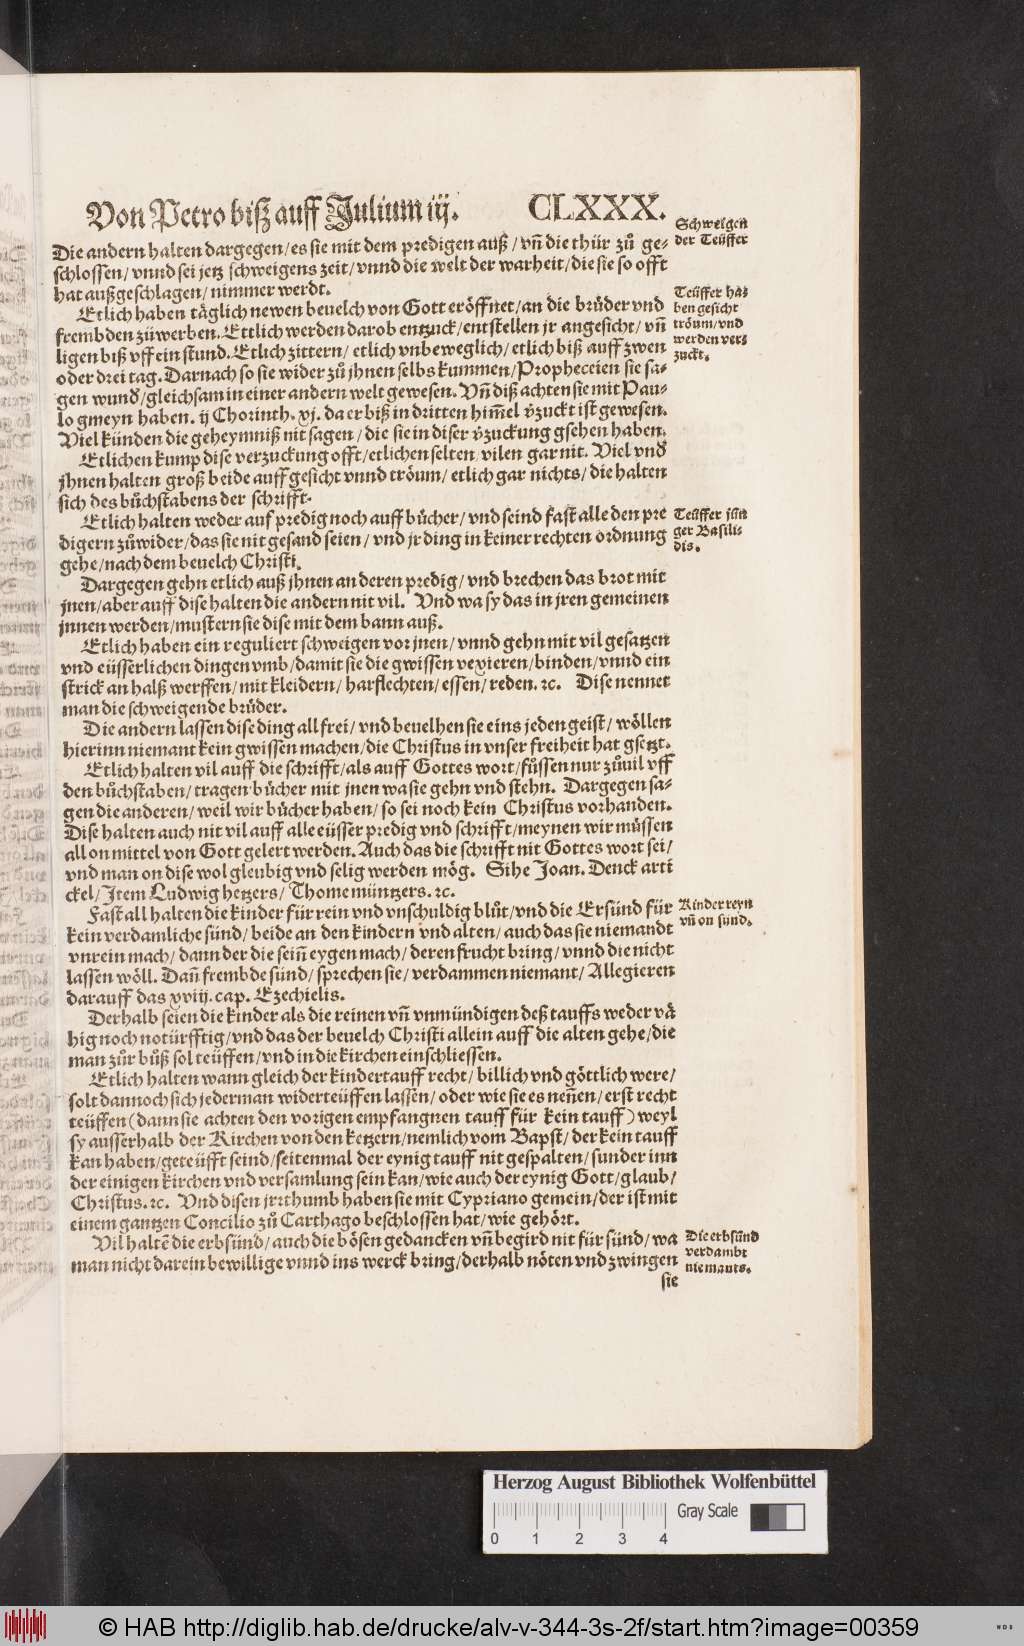 Von Petro biß auff Julium iij. CLXXX.
Die andern halten dargegen/ es sie mit dem predigen auß/ vñ die thür zů ge-
schlossen/ vnnd sei jetz schweigens zeit/ vnnd die welt der warheit/ die sie so offt
hat außgeschlagen/ nimmer werdt.
Schweigen
der Teüffer
Etlich haben täglich newen beuelch von Gott eröffnet/ an die brůder vnd
frembden zůwerben. Ettlich werden darob entzuck/ entstellen jr angesicht/ vñ
ligen biß vff ein stund. Etlich zittern/ etlich vnbeweglich/ etlich biß auff zwen
oder drei tag. Darnach so sie wider zů jhnen selbs kummen/ Propheceien sie sa-
gen wund̃/ gleichsam in einer andern welt gewesen. Vñ diß achten sie mit Pau-
lo gmeyn haben. ij Chorinth. xj. da er biß in dritten him̃el v̈zuckt ist gewesen.
Viel künden die geheymniß nit sagen/ die sie in diser v̈zuckung gsehen haben.
Teüffer ha-
ben gesicht
tröum/ vnd
werden ver-
zuckt.
Etlichen kump dise verzuckung offt/ etlichen selten/ vilen gar nit. Viel vnd̃
jhnen halten groß beide auff gesicht vnnd tröum/ etlich gar nichts/ die halten
sich des bůchstabens der schrifft.
Etlich halten weder auf predig noch auff bůcher/ vnd seind fast alle den pre
digern zůwider/ das sie nit gesand seien/ vnd jr ding in keiner rechten ordnung
gehe/ nach dem beuelch Christi.
Teüffer jün
ger Basili-
dis.
Dargegen gehn etlich auß jhnen an deren predig/ vnd brechen das brot mit
jnen/ aber auff dise halten die andern nit vil. Vnd wa sy das in jren gemeinen
jnnen werden/ mustern sie dise mit dem bann auß.
Etlich haben ein reguliert schweigen vor jnen/ vnnd gehn mit vil gesatzen
vnd eüsserlichen dingen vmb/ damit sie die gwissen vexieren/ binden/ vnnd ein
strick an halß werffen/ mit kleidern/ harflechten/ essen/ reden. ꝛc. Dise nennet
man die schweigende brůder.
Die andern lassen dise ding all frei/ vnd beuelhen sie eins jeden geist/ wöllen
hierinn niemant kein gwissen machen/ die Christus in vnser freiheit hat gsetzt.
Etlich halten vil auff die schrifft/ als auff Gottes wort/ fůssen nur zůuil vff
den bůchstaben/ tragen bůcher mit jnen wa sie gehn vnd stehn. Dargegen sa-
gen die anderen/ weil wir bůcher haben/ so sei noch kein Christus vorhanden.
Dise halten auch nit vil auff alle eüsser predig vnd schrifft/ meynen wir můssen
all on mittel von Gott gelert werden. Auch das die schrifft nit Gottes wort sei/
vnd man on dise wol gleubig vnd selig werden mög. Sihe Joan. Denck arti
ckel/ Item Ludwig hetzers/ Thome müntzers. ꝛc.
Fast all halten die kinder für rein vnd vnschuldig blůt/ vnd die Ersünd für
kein verdamliche sünd/ beide an den kindern vnd alten/ auch das sie niemandt
vnrein mach/ dann der die sein̄ eygen mach/ deren frucht bring/ vnnd die nicht
lassen wöll. Dañ frembde sünd/ sprechen sie/ verdammen niemant/ Allegieren
darauff das xviij. cap. Ezechielis.
Kinder reyn
vñ on sünd.
Derhalb seien die kinder als die reinen vñ vnmündigen deß tauffs weder vä
hig noch notürfftig/ vnd das der beuelch Christi allein auff die alten gehe/ die
man zůr bůß sol teüffen/ vnd in die kirchen einschliessen.
Etlich halten wann gleich der kindertauff recht/ billich vnd göttlich were/
solt dannoch sich jederman widerteüffen lassen/ oder wie sie es neñen/ erst recht
teüffen (dann sie achten den vorigen empfangnen tauff für kein tauff) weyl
sy ausserhalb der Kirchen von den ketzern/ nemlich vom Bapst/ der kein tauff
kan haben/ geteüfft seind/ seitenmal der eynig tauff nit gespalten/ sunder inn
der einigen kirchen vnd versamlung sein kan/ wie auch der eynig Gott/ glaub/
Christus. ꝛc. Vnd disen jrrthumb haben sie mit Cypriano gemein/ der ist mit
einem gantzen Concilio zů Carthago beschlossen hat/ wie gehört.
Vil haltẽ die erbsünd/ auch die bösen gedancken vñ begird nit für sünd/ wa
man nicht darein bewillige vnnd ins werck bring/ derhalb nöten vnd zwingen
sie
Die erbsünd
verdambt
niemants.
Herzog August Bibliothek Wolfenbüttel
Gray Scale
0 1 2 3 4
© HAB http://diglib.hab.de/drucke/alv-v-344-3s-2f/start.htm?image=00359